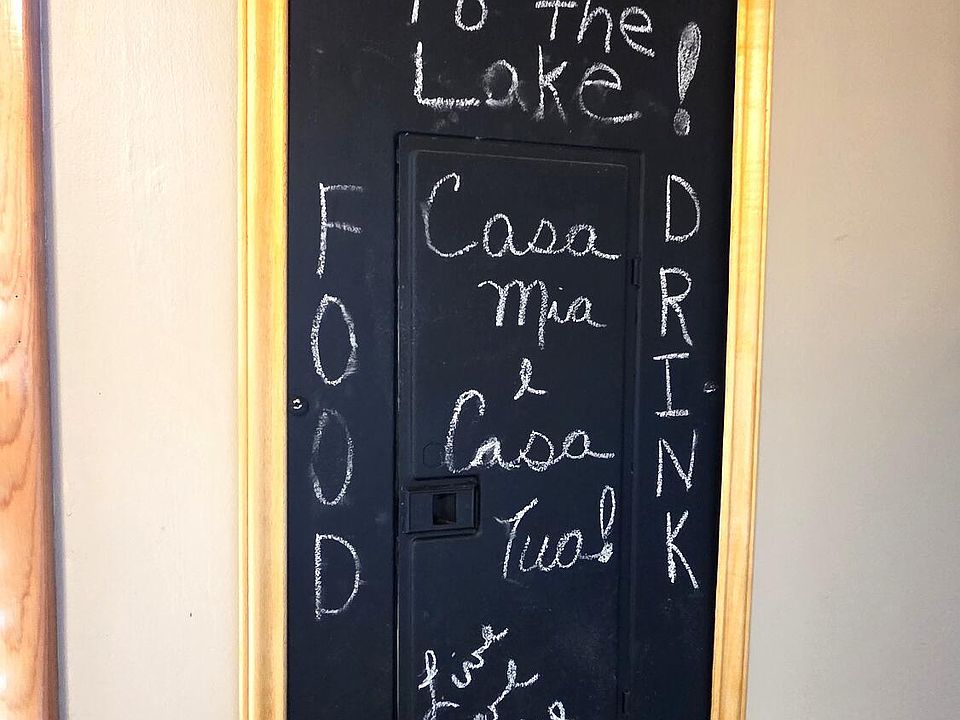 To The
Lake!
FOOD
Casa
Mia
e
Casa
Tua!
DRINK
Live